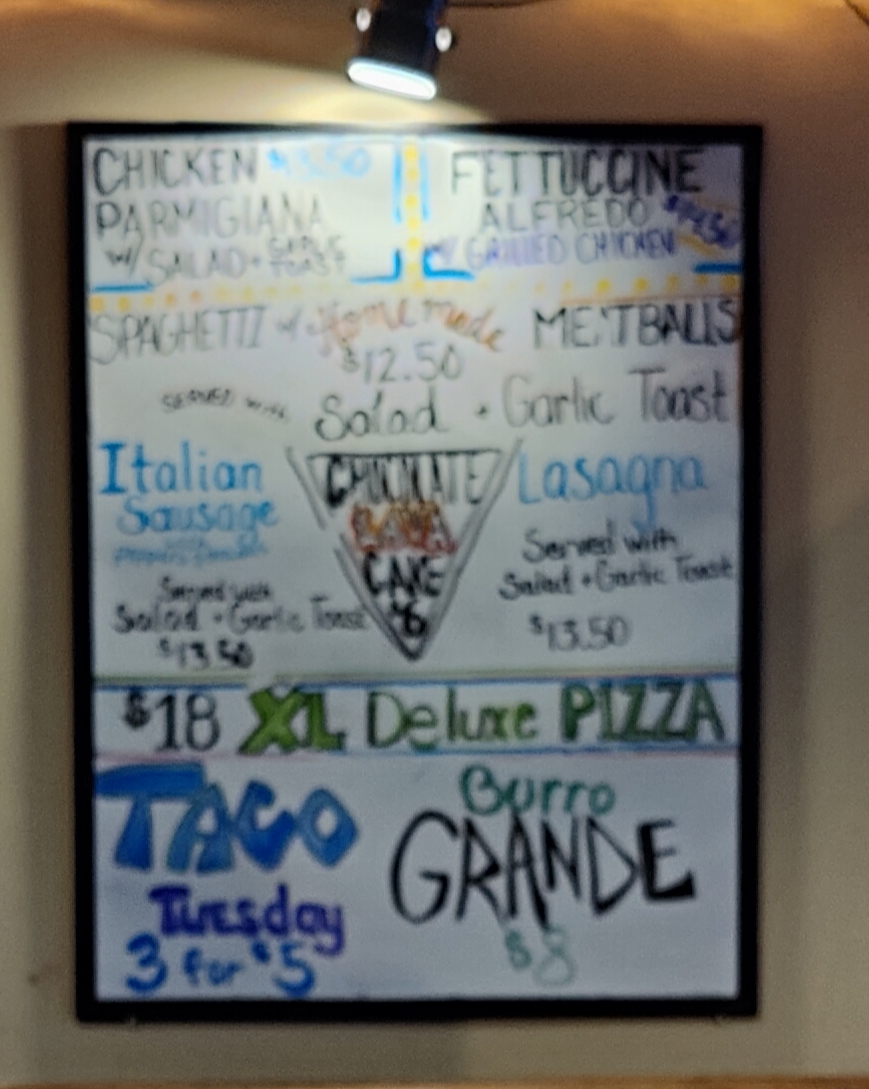 CHICKEN $13.50
PARMIGIANA
w/ SALAD + GARLIC TOAST
FETTUCCINE
ALFREDO $14.50
w/ GRILLED CHICKEN
SPAGHETTI w/ Homemade MEATBALLS
$12.50
SERVED with Salad + Garlic Toast
Italian
Sausage
Served with
Salad + Garlic Toast
$13.50
CHOCOLATE
LAVA
CAKE
$6
Lasagna
Served with
Salad + Garlic Toast
$13.50
$18 XL Deluxe PIZZA
TACO
Tuesday
3 for $5
Burro
GRANDE
$8